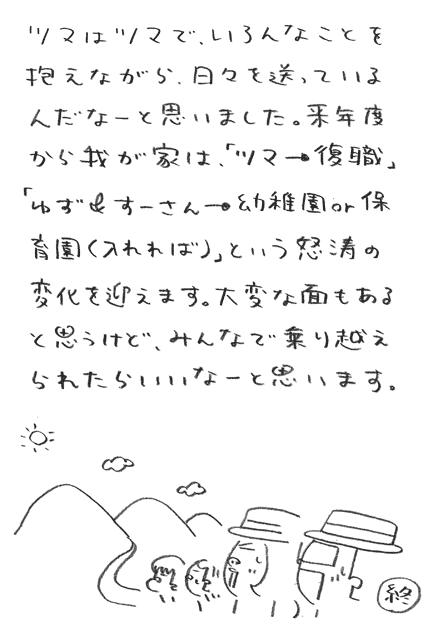 ツマはツマで、いろんなことを
抱えながら、日々を送っている
んだなーと思いました。来年度
から我が家は、「ツマ→復職」
「ゆず&すーさん→幼稚園or保
育園(入れれば)」という怒涛の
変化を迎えます。大変な面もある
と思うけど、みんなで乗り越え
られたらいいなーと思います。
終